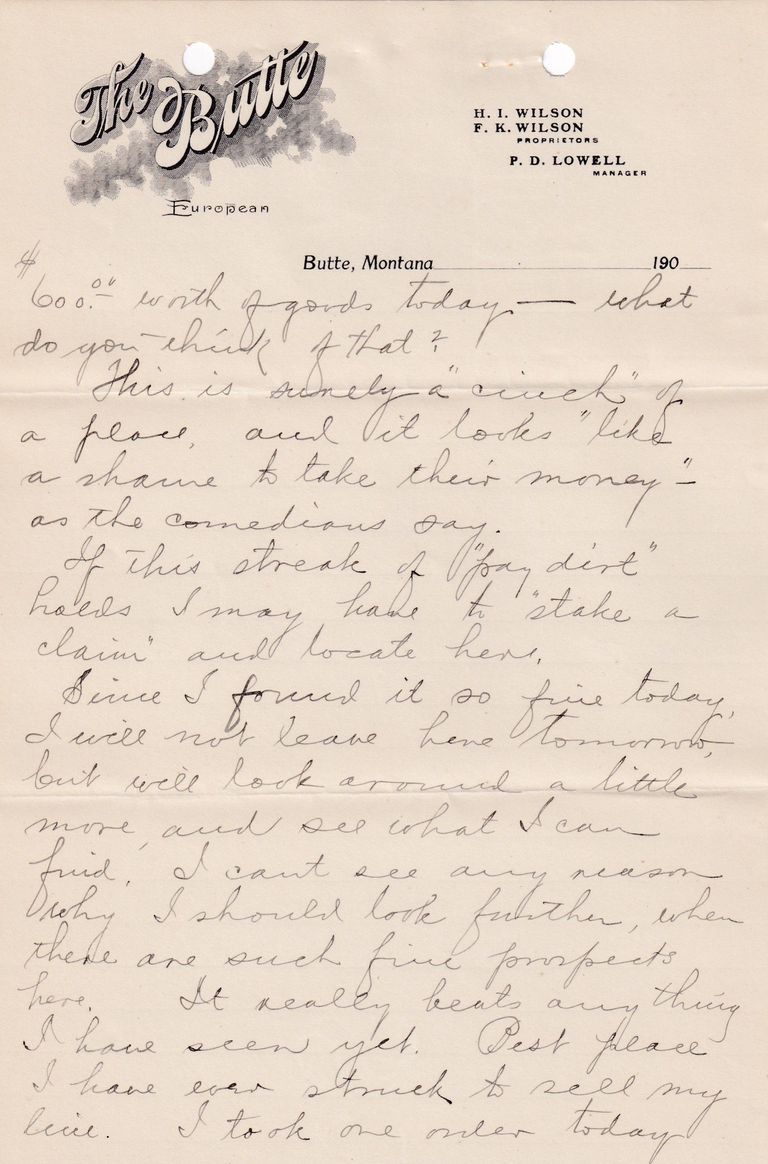 The Butte
European
H. I. WILSON
F. K. WILSON
PROPRIETORS
P. D. LOWELL
MANAGER
Butte, Montana 190
$600.00 worth of goods today — what
do you think of that?
This is surely a "cinch" of
a place, and it looks "like
a shame to take their money" -
as the comedians say.
If this streak of "pay dirt"
holds I may have to "stake a
claim" and locate here.
Since I found it so fine today,
I will not leave here tomorrow,
but will look around a little
more, and see what I can
find. I cant see any reason
why I should look further, when
there are such fine prospects
here. It really beats any thing
I have seen yet. Best place
I have ever struck to sell my
line. I took one order today